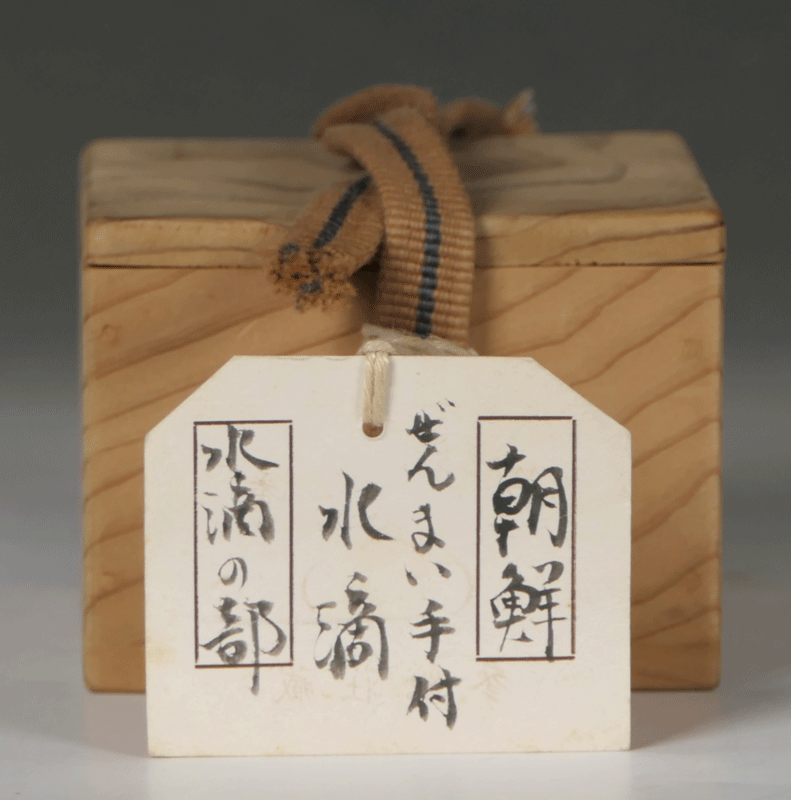 朝鮮
ぜんまい手付
水滴
水滴の部